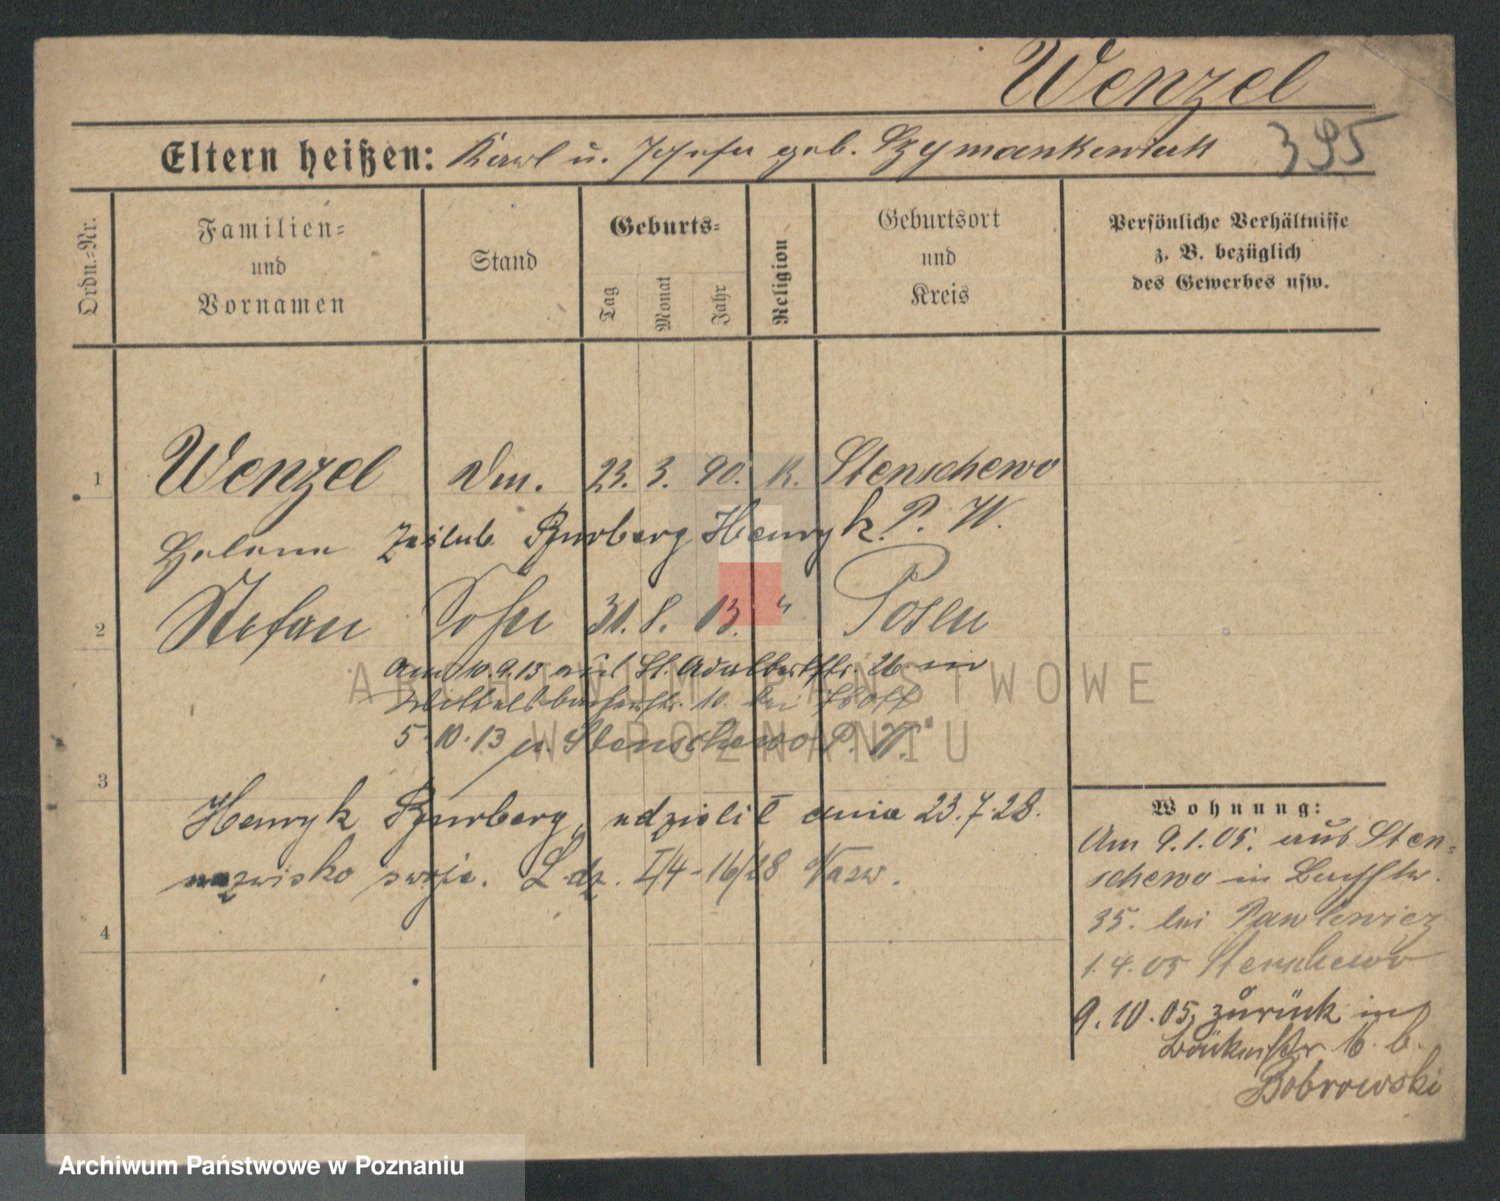 Wenzel
Eltern heißen: Karl u. Josefa geb. Szymankewiack
395
Ordn.-Nr.
Familien-
und
Vornamen
Stand
Geburts-
Tag
Monat
Jahr
Religion
Geburtsort
und
Kreis
Persönliche Verhältnisse
z. B. bezüglich
des Gewerbes usw.
1 Wenzel Dm. 23. 3. 90. K. Stenschewo
Helene Zaślub. Henryk. P. W.
2 Stefan Sohn 31. 8. 13. " Posen
am 10.9.13 aus St. Adalbertstr. 26 in
10. bei
5.10.13 n. Stenschewo P. W.
3
Henryk udzielił dnia 23.7.28.
nazwisko swoje. L. dz. I/4-16/28 Nazw.
4
Wohnung:
Am 9.1.05. aus Sten-
schewo in
35. bei Pawlewicz
1.4.05 Stenschewo
9.10.05, zurück in
Bäckerstr 6. b.
Bobrowski
ARCHIWUM PAŃSTWOWE
W POZNANIU
Archiwum Państwowe w Poznaniu